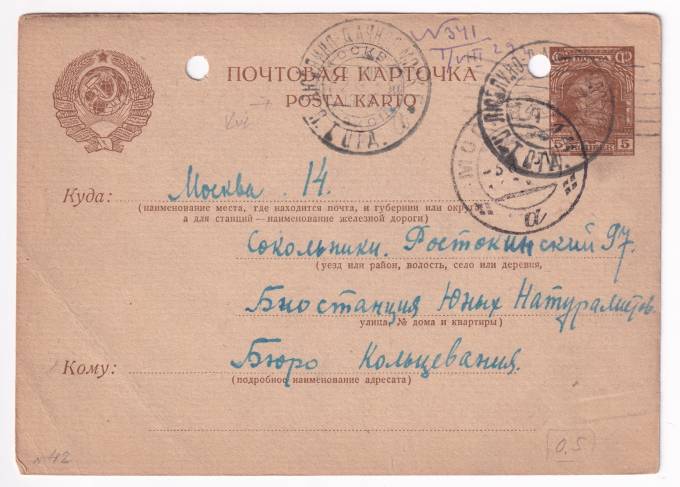 № 341
ПОЧТОВАЯ КАРТОЧКА
POŜTA KARTO
5
Куда: Москва . 14.
(наименование места, где находится почта, и губернии или округа
а для станций—наименование железной дороги)
Сокольники. Ростокинский 97.
(уезд или район, волость, село или деревня,
Биостанция Юных Натуралистов.
улица, № дома и квартиры)
Кому: Бюро Кольцевания.
(подробное наименование адресата)
№42
0.5